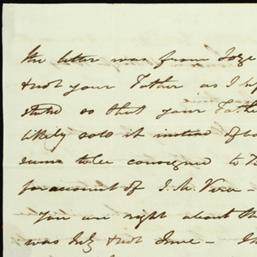 the letter was from Joze
& not your Father as I
stated so that your Father
likely sold it instead of
same to be consigned to
for account of J. M. Vera -
You are right about the
was July & not June -